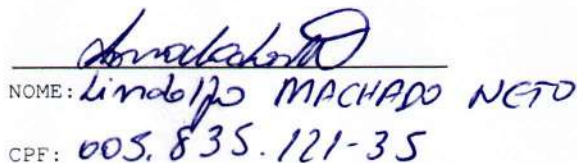 NOME: Lindolfo MACHADO NETO
CPF: 005.835.121-35